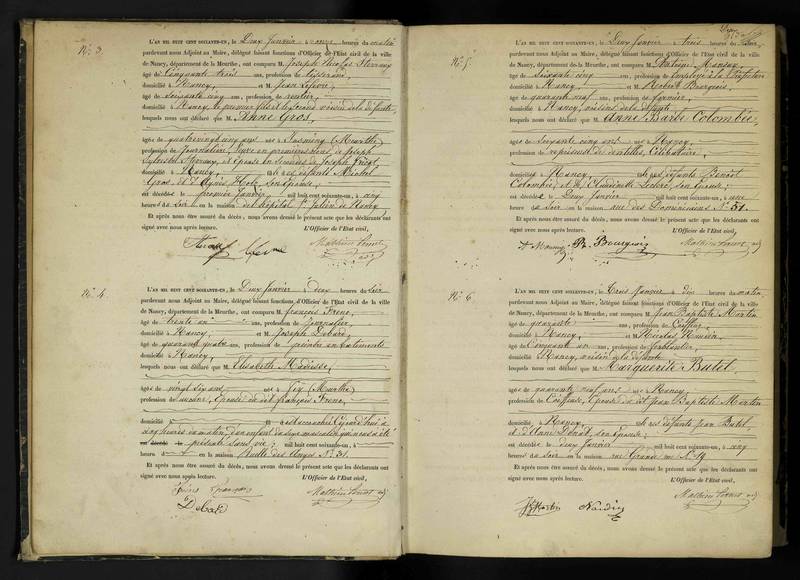 N.º 3.
L'AN MIL HUIT CENT SOIXANTE-UN, le Deux Janvier à onze heures du matin
pardevant nous Adjoint au Maire, délégué faisant fonctions d'Officier de l'État civil de la ville
de Nancy, département de la Meurthe, ont comparu M. Joseph Nicolas
âgé de Cinquante trois ans, profession de tisserand,
domicilié à Nancy, et M. Jean Lefèvre,
âgé de soixante cinq ans, profession de rentier,
domicilié à Nancy, le premier fils et le second voisin de la défunte,
lesquels nous ont déclaré que M. Anne Gros,
âgée de quatrevingt ans née à (Meurthe)
profession de Journalière, Veuve en premières noces de Joseph
et Epouse en secondes de Joseph
domiciliée à Nancy, fille des défunts Michel
Gros, et d'Agnès son Epouse,
est décédée le premier janvier mil huit cent soixante-un, à cinq
heures du soir en la maison de l'hôpital St. Julien de Nancy.
Et après nous être assuré du décès, nous avons dressé le présent acte que les déclarants ont
signé avec nous après lecture. L'Officier de l'État civil,
N.º 4.
L'AN MIL HUIT CENT SOIXANTE-UN, le Deux Janvier à deux heures du soir
pardevant nous Adjoint au Maire, délégué faisant fonctions d'Officier de l'État civil de la ville
de Nancy, département de la Meurthe, ont comparu M. François Frene,
âgé de trente un ans, profession de Journalier,
domicilié à Nancy et M. Joseph Debard
âgé de quarante quatre ans, profession de peintre en batiments
domicilié à Nancy,
lesquels nous ont déclaré que M. Elisabeth
âgée de vingt six ans née à (Meurthe)
profession de aucune, Epouse du dit François Frene,
domiciliée à est accouchée Cejourd'hui à
cinq heures du matin, d'un enfant du sexe masculin qui nous a été
présenté sans vie; mil huit cent soixante-un, à
heures en la maison Ruelle des Anges N.º 31.
Et après nous être assuré du décès, nous avons dressé le présent acte que les déclarants ont
signé avec nous après lecture. L'Officier de l'État civil,
Frene François
Debard
N.º 5.
L'AN MIL HUIT CENT SOIXANTE-UN, le Deux Janvier à trois heures du soir,
pardevant nous Adjoint au Maire, délégué faisant fonctions d'Officier de l'État civil de la ville
de Nancy, département de la Meurthe, ont comparu M.
âgé de soixante cinq ans, profession de Employé à la Préfecture
domicilié à Nancy et M. Robert Bourgeois,
âgé de quarante neuf ans, profession de
domicilié à Nancy, voisins de la défunte,
lesquels nous ont déclaré que M. Anne Barbe Colombée,
âgée de soixante cinq ans née à Nancy,
profession de repriseuse de dentelles, Célibataire,
domiciliée à Nancy, fille des défunts Benoit
Colombée, et de Leclerc, son Epouse,
est décédée le Deux Janvier mil huit cent soixante-un, à une
heure du soir en la maison rue des Dominicains N.º 51.
Et après nous être assuré du décès, nous avons dressé le présent acte que les déclarants ont
signé avec nous après lecture. L'Officier de l'État civil,
R. Bourgeois
N.º 6.
L'AN MIL HUIT CENT SOIXANTE-UN, le Trois Janvier à dix heures du matin,
pardevant nous Adjoint au Maire, délégué faisant fonctions d'Officier de l'État civil de la ville
de Nancy, département de la Meurthe, ont comparu M. Jean Baptiste Martin
âgé de quarante ans, profession de Coiffeur,
domicilié à Nancy, et M. Nicolas
âgé de Cinquante un ans, profession de ferblantier,
domicilié à Nancy, voisin de la défunte
lesquels nous ont déclaré que M. Marguerite Butel,
âgée de quarante neuf ans née à Nancy,
profession de Coiffeuse, Epouse du dit Jean Baptiste Martin
domiciliée à Nancy, fille des défunts Jean Butel
et d'Anne son Epouse;
est décédée le deux Janvier mil huit cent soixante-un, à cinq
heures du soir en la maison rue Grande rue N.º 19
Et après nous être assuré du décès, nous avons dressé le présent acte que les déclarants ont
signé avec nous après lecture. L'Officier de l'État civil,
JBMartin